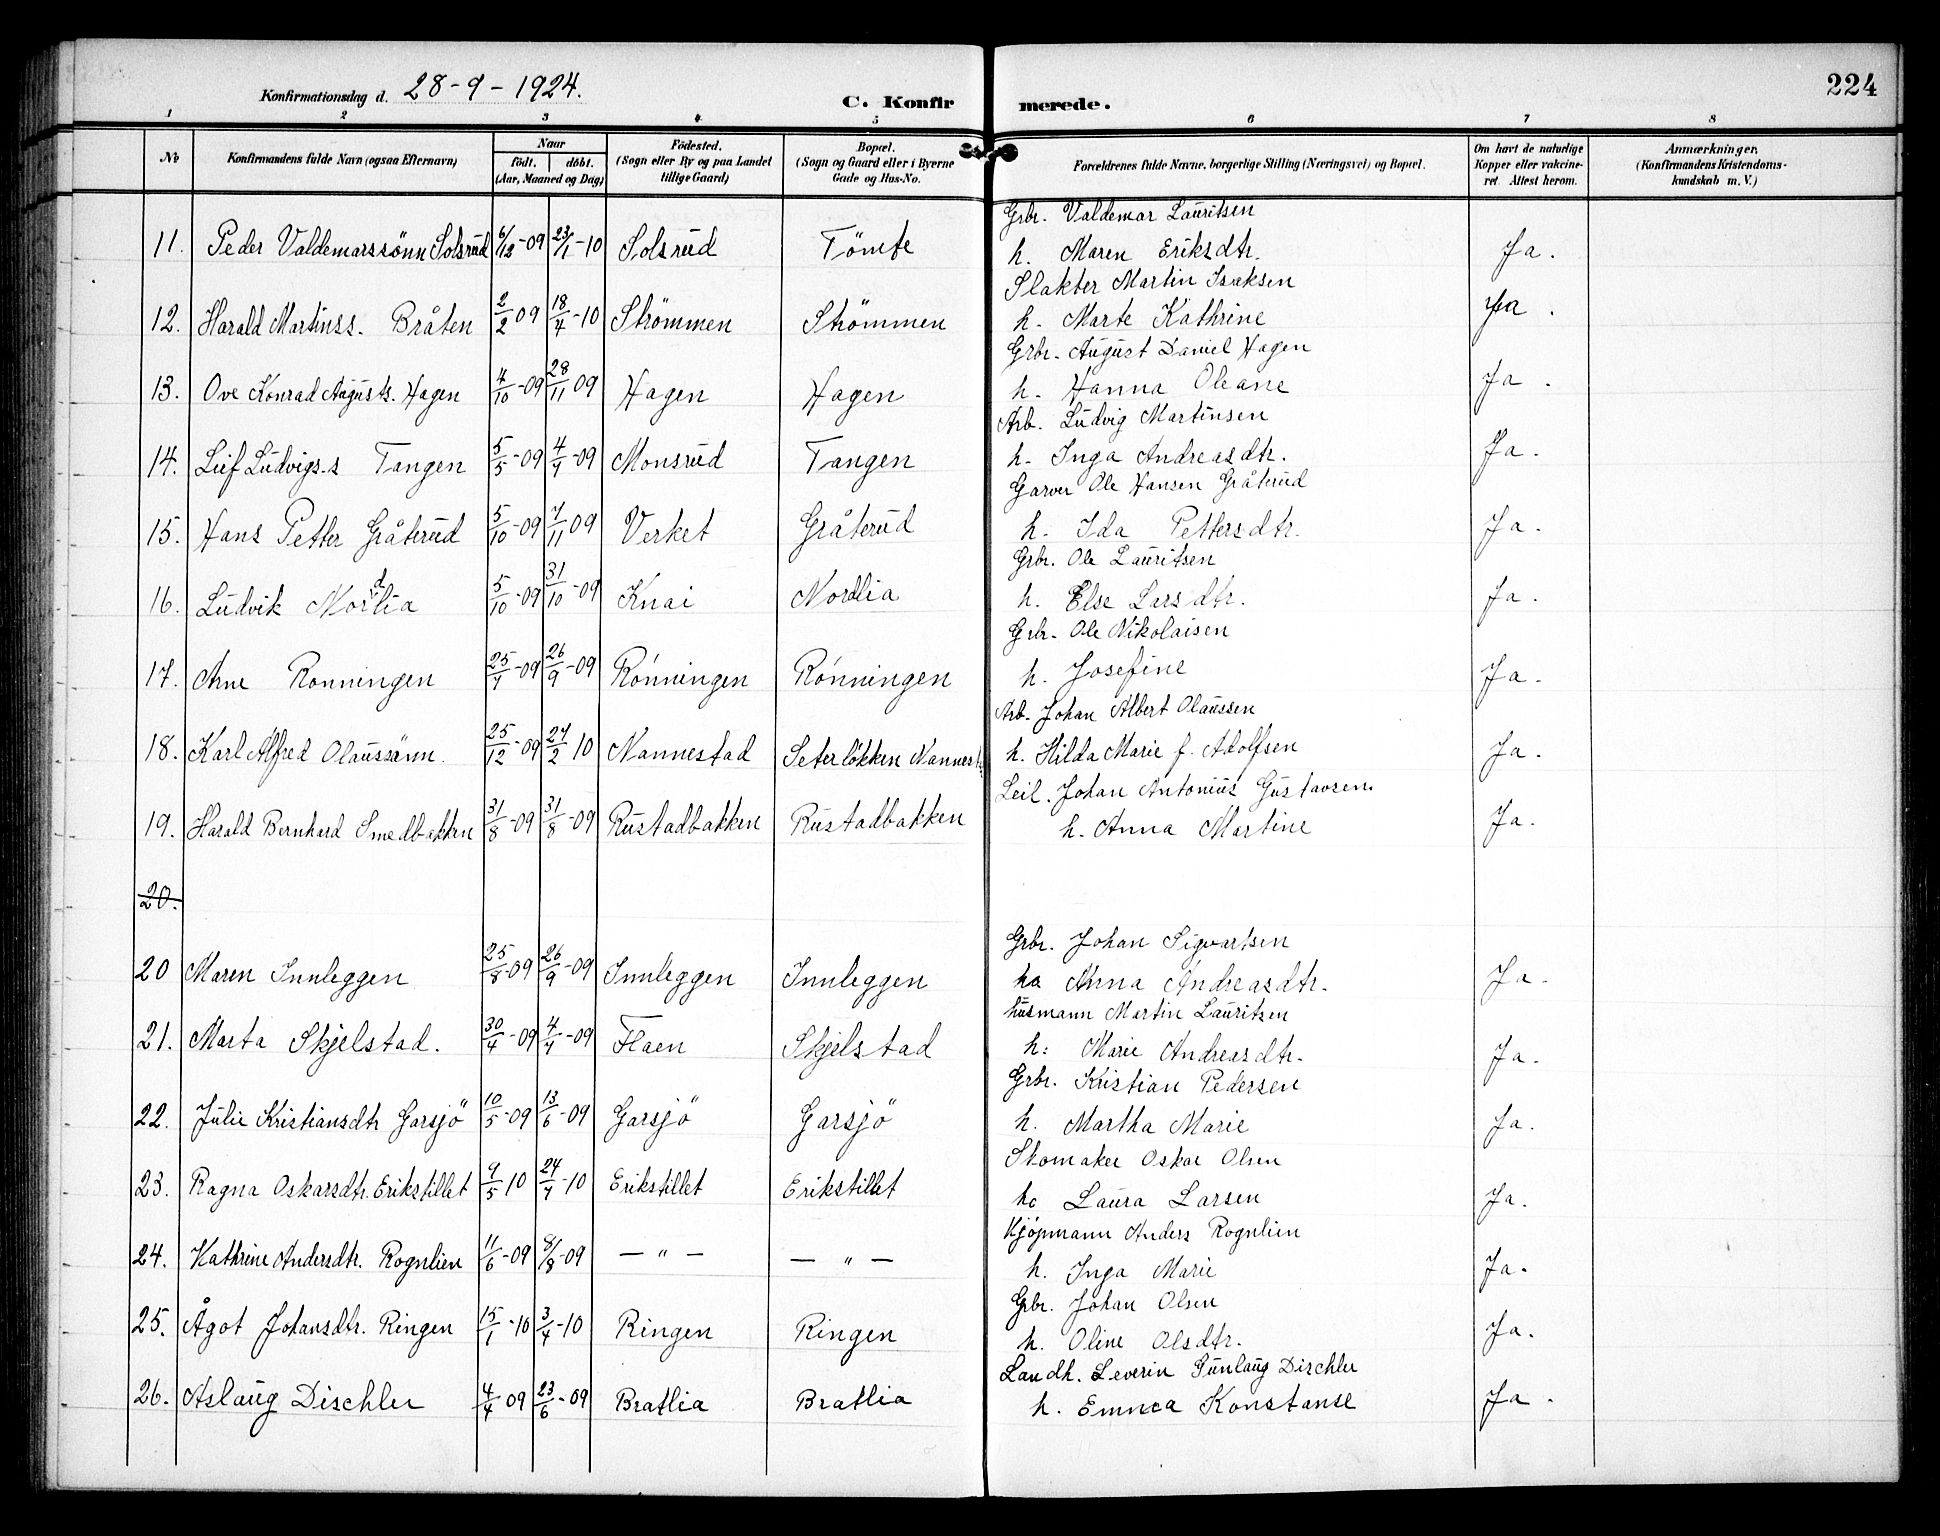 224
Konfirmationsdag d. 28-9-1924.
C. Konfirmerede.
1 2 3 4 5 6 7 8
No
Konfirmandens fulde Navn (ogsaa Efternavn)
Naar
født. døbt.
(Aar, Maaned og Dag)
Fødested.
(Sogn eller By og paa Landet
tillige Gaard)
Bopæl.
(Sogn og Gaard eller i Byerne
Gade og Hus-No.
Forældrenes fulde Navne, borgerlige Stilling (Næringsvei) og Bopæl.
Om havt de naturlige
Kopper eller vakcine-
ret. Attest herom.
Anmærkninger.
(Konfirmandens Kristendoms-
kundskab m. V.)
Grbr. Valdemar Lauritsen
11. Peder Valdemarssönn Solsrud 6/12-09 23/1-10 Solsrud Tömte h. Maren Eriksdtr. Ja.
Slakter Martin Isaksen
12. Harald Martinss. Bråten 2/2 09 18/4-10 Strömmen Strömmen h. Marte Kathrine Ja.
Grbr. August Daniel Hagen
13. Ove Konrad Augusts. Hagen 4/10-09 28/11 09 Hagen Hagen h. Hanna Oleane Ja.
Arb. Ludvig Martinsen
14. Leif Ludvigs.s Tangen 5/5-09 4/7-09 Monsrud Tangen h. Inga Andreasdtr. Ja.
Garver Ole Hansen Gråterud
15. Hans Petter Gråterud 5/10-09 7/11 09 Verket Gråterud h. Ida Pettersdtr. Ja.
Grbr. Ole Lauritsen
16. Ludvik Nordlia 5/10-09 31/10-09 Knai Nordlia h. Else Larsdtr. Ja.
Grbr. Ole Nikolaisen
17. Arne Ronningen 25/7-09 26/9-09 Rónningen Rónningen h. Josefine Ja.
Arb. Johan Albert Olaussen
18. Karl Alfred Olaussönn. 25/12-09 27/2 10 Nannestad Seterlökken h. Hilda Marie f. Adolfsen Ja.
Leil. Johan Antonius Gustavsen.
19. Harald Bernhard Smedbakken 31/8-09 31/8-09 Rustadbakken Rustadbakken h. Anna Martine Ja.
20.
Grbr. Johan Sigvartsen
20 Maren Innleggen 25/8-09 26/9-09 Innleggen Innleggen ha Anna Andreasdtr. Ja.
husmann Martin Lauritzen
21. Marta Skjelstad. 30/4-09 4/7-09 Flaen Skjelstad h: Marie Andreasdtr. Ja.
Grbr. Kristian Pedersen
22. Julie Kristiansdtr Garsjö 10/5-09 13/6-09 Garsjö Garsjö h. Martha Marie Ja.
Skomaker Oskar Olsen
23. Ragna Oskarsdtr. Erikstillet 9/5 10 24/7-10 Erikstillet Erikstillet ho Laura Larsen Ja.
Kjöpmann Anders Rognlien
24. Kathrine Andersdtr. Rognlien 11/6-09 8/8-09 — " — — " — h. Inga Marie Ja.
Grbr. Johan Olsen
25. Ågot Johansdtr. Ringen 15/1-10 3/4-10 Ringen Ringen h. Oline Olsdtr. Ja.
Landh. Severin Dischler
26. Aslaug Dischler 4/4 09 23/6-09 Bratlia Bratlia h. Emma Konstanse Ja.